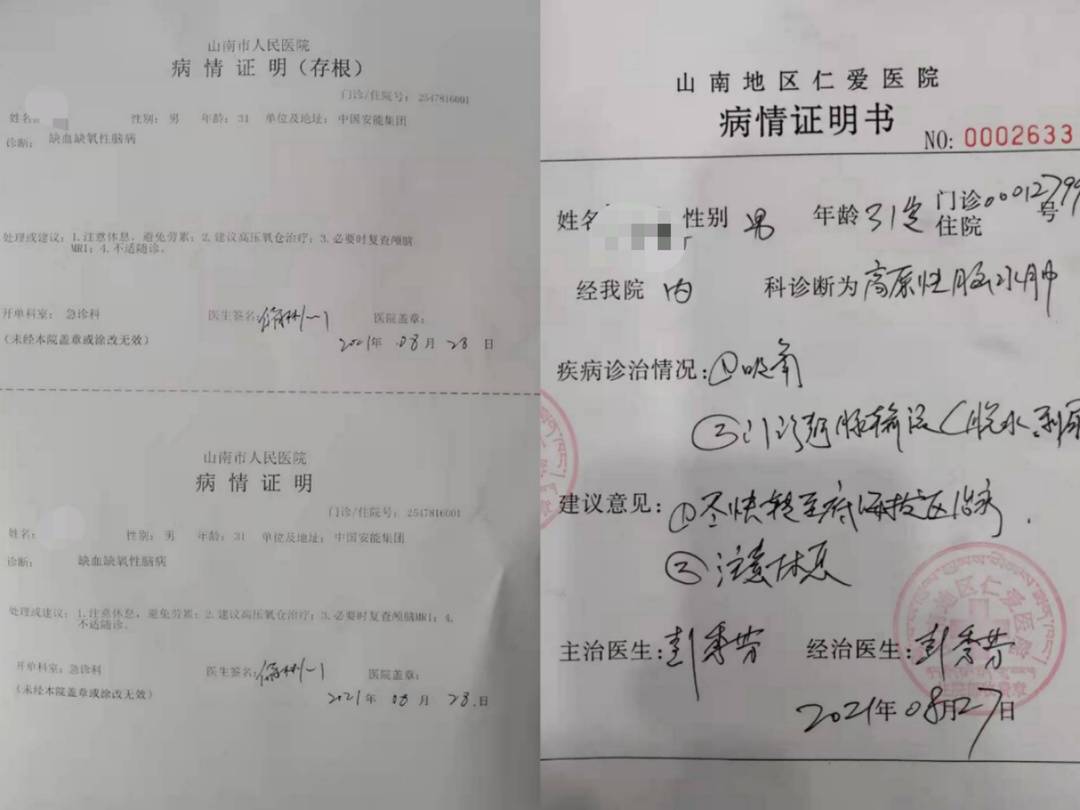 山南市人民医院
病情证明(存根)
门诊/住院号: 2547816001
姓名 性别: 男 年龄: 31 单位及地址: 中国安能集团
诊断: 缺血缺氧性脑病
处理或建议: 1.注意休息,避免劳累;2.建议高压氧仓治疗;3.必要时复查颅脑
MRI;4.不适随诊。
开单科室: 急诊科 医生签名: 医院盖章:
(未经本院盖章或涂改无效) 2021年 08月 28日
山南市人民医院
病情证明
门诊/住院号: 2547816001
姓名: 性别: 男 年龄: 31 单位及地址: 中国安能集团
诊断: 缺血缺氧性脑病
处理或建议: 1.注意休息,避免劳累;2.建议高压氧仓治疗;3.必要时复查颅脑MRI;4.
不适随诊。
开单科室: 急诊科 医生签名: 医院盖章:
(未经本院盖章或涂改无效) 2021年 08月 28日
山南地区仁爱医院
病情证明书
NO: 0002633
姓名 性别 男 年龄 31岁 门诊 住院 00012799 号
经我院 内 科诊断为 高原性脑水肿
疾病诊治情况: ①吸氧
②门诊静脉输液(脱水、利尿
建议意见: ①尽快转至低海拔区治疗.
②注意休息
主治医生: 彭秀芳 经治医生: 彭秀芳
2021年08月27日
地区仁爱医院